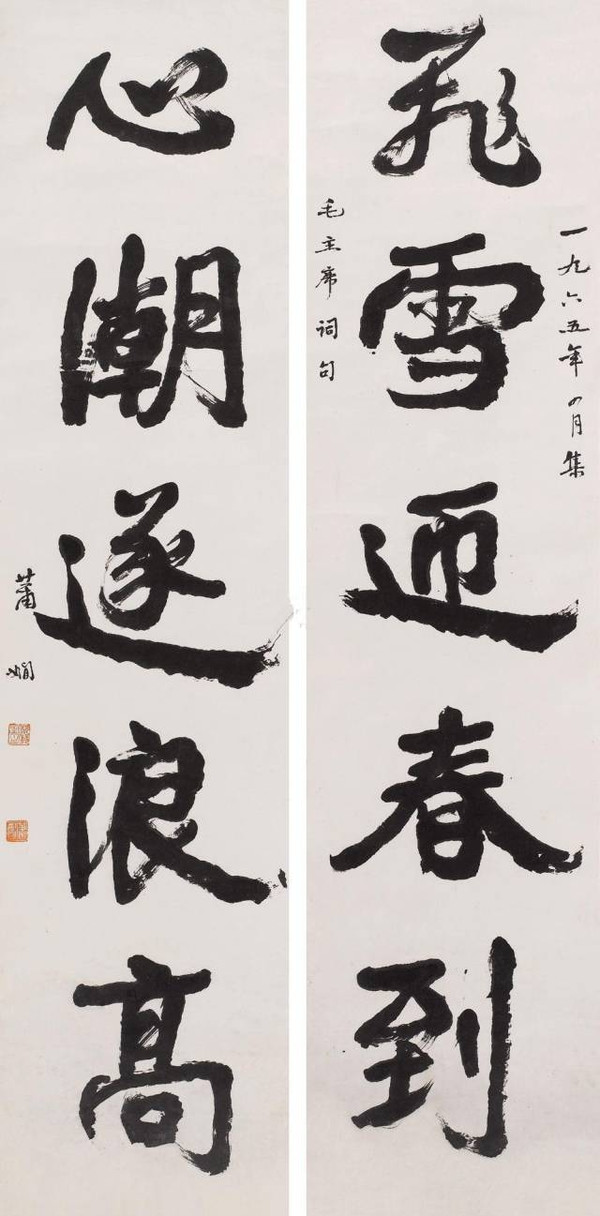 飛雪迎春到
一九六五年四月集
毛主席词句
心潮逐浪高
蕭嫻